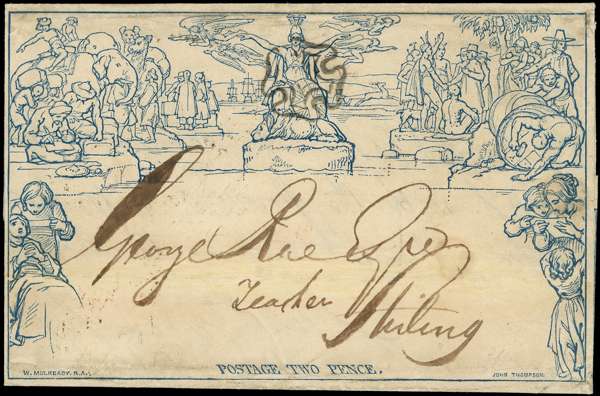 George Rae Esqre
Teacher
Stirling
POSTAGE TWO PENCE.
W. MULREADY. R.A.
JOHN THOMPSON